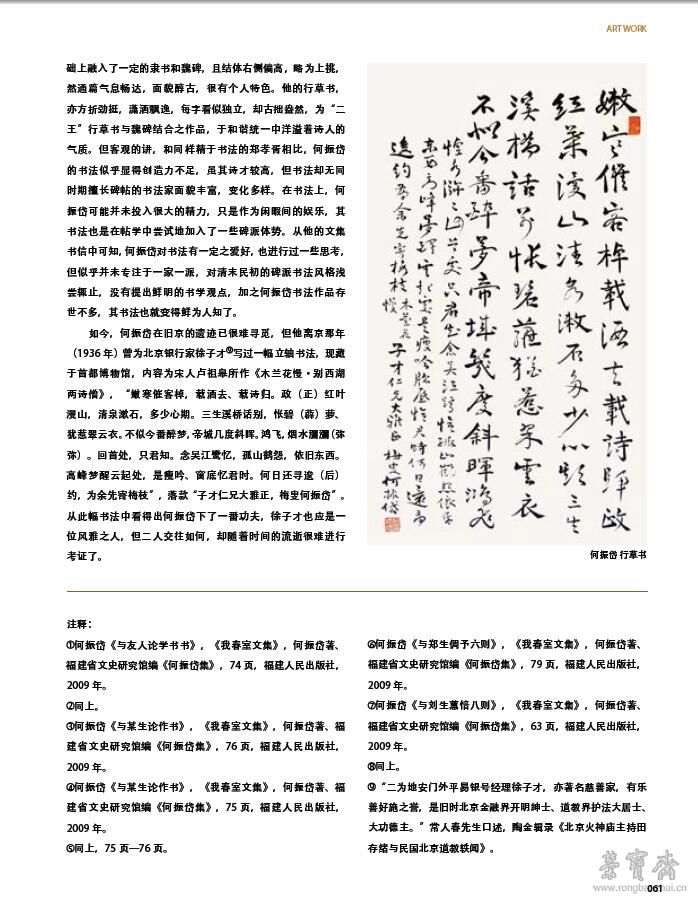 ARTWORK
础上融入了一定的隶书和魏碑，且结体右侧偏高，略为上挑，
然通篇气息畅达，面貌醇古，很有个人特色。他的行草书，
亦方折劲挺，潇洒飘逸，每字看似独立，却古拙盎然，为“二
王”行草书与魏碑结合之作品，于和谐统一中洋溢着诗人的
气质。但客观的讲，和同样精于书法的郑孝胥相比，何振岱
的书法似乎显得创造力不足，虽其诗才较高，但书法却无同
时期擅长碑帖的书法家面貌丰富，变化多样。在书法上，何
振岱可能并未投入很大的精力，只是作为闲暇间的娱乐，其
书法也是在帖学中尝试地加入了一些碑派体势。从他的文集
书信中可知，何振岱对书法有一定之爱好，也进行过一些思考，
但似乎并未专注于一家一派，对清末民初的碑派书法风格浅
尝辄止，没有提出鲜明的书学观点，加之何振岱书法作品存
世不多，其书法也就变得鲜为人知了。
如今，何振岱在旧京的遗迹已很难寻觅，但他离京那年
（1936 年）曾为北京银行家徐子才⑨写过一幅立轴书法，现藏
于首都博物馆，内容为宋人卢祖皋所作《木兰花慢·别西湖
两诗僧》，“嫩寒催客棹，载酒去、载诗归。政（正）红叶
漫山，清泉漱石，多少心期。三生溪桥话别，怅碧（薜）萝、
犹惹翠云衣。不似今番醉梦，帝城几度斜晖。鸿飞，烟水瀰瀰（弥
弥）。回首处，只君知。念吴江鹭忆，孤山鹤怨，依旧东西。
高峰梦醒云起处，是瘦吟、窗底忆君时。何日还寻逡（后）
约，为余先寄梅枝”，落款“子才仁兄大雅正，梅叟何振岱”。
从此幅书法中看得出何振岱下了一番功夫，徐子才也应是一
位风雅之人，但二人交往如何，却随着时间的流逝很难进行
考证了。
嫩寒催客棹载酒去载詩歸政
紅葉漫山清泉漱石多少心期三生
溪橋話別悵碧蘿猶惹翠雲衣
不似今番醉夢帝城幾度斜暉鴻飛
子才仁兄大雅正 梅叟何振岱
何振岱 行草书
注释：
①何振岱《与友人论学书书》，《我春室文集》，何振岱著、
福建省文史研究馆编《何振岱集》，74 页，福建人民出版社，
2009 年。
②同上。
③何振岱《与某生论作书》，《我春室文集》，何振岱著、福
建省文史研究馆编《何振岱集》，76 页，福建人民出版社，
2009 年。
④何振岱《与某生论作书》，《我春室文集》，何振岱著、福
建省文史研究馆编《何振岱集》，75 页，福建人民出版社，
2009 年。
⑤同上，75 页—76 页。
⑥何振岱《与郑生倜予六则》，《我春室文集》，何振岱著、
福建省文史研究馆编《何振岱集》，79 页，福建人民出版社，
2009 年。
⑦何振岱《与刘生蕙愔八则》，《我春室文集》，何振岱著、
福建省文史研究馆编《何振岱集》，63 页，福建人民出版社，
2009 年。
⑧同上。
⑨“二为地安门外平易银号经理徐子才，亦著名慈善家，有乐
善好施之誉，是旧时北京金融界开明绅士、道教界护法大居士、
大功德主。”常人春先生口述，陶金辑录《北京火神庙主持田
存绪与民国北京道教轶闻》。
榮寶齋
www.rongbaozhai.cn
061